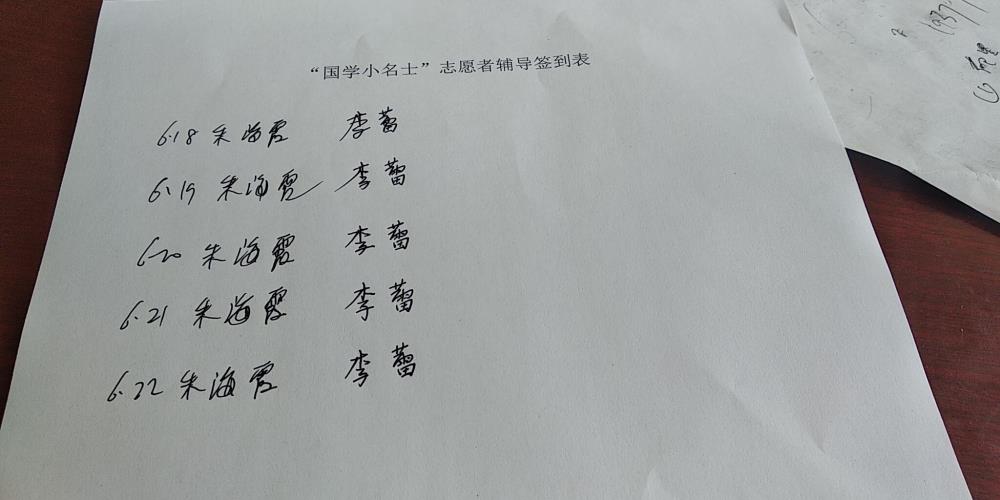 “国学小名士”志愿者辅导签到表
6.18 朱海霞 李蕾
6.19 朱海霞 李蕾
6.20 朱海霞 李蕾
6.21 朱海霞 李蕾
6.22 朱海霞 李蕾